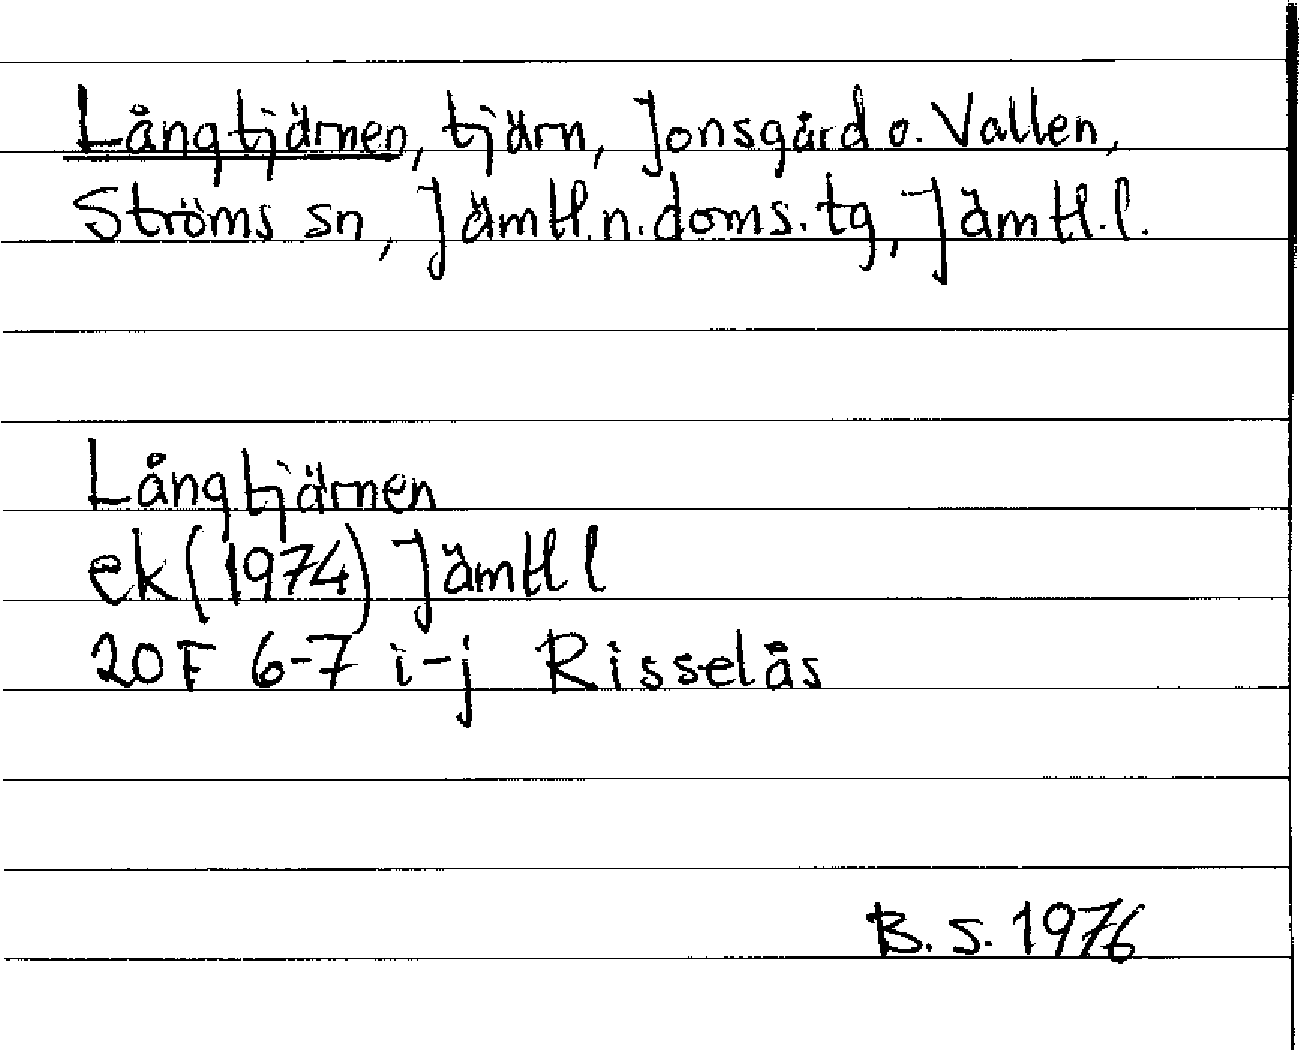 Långtjärnen, tjärn, Jonsgård o. Vallen,
Ströms sn, Jämtl.n.doms.tg, Jämtl.l.
Långtjärnen
ek (1974) Jämtl l
20F 6-7 i-j Risselås
B.S. 1976